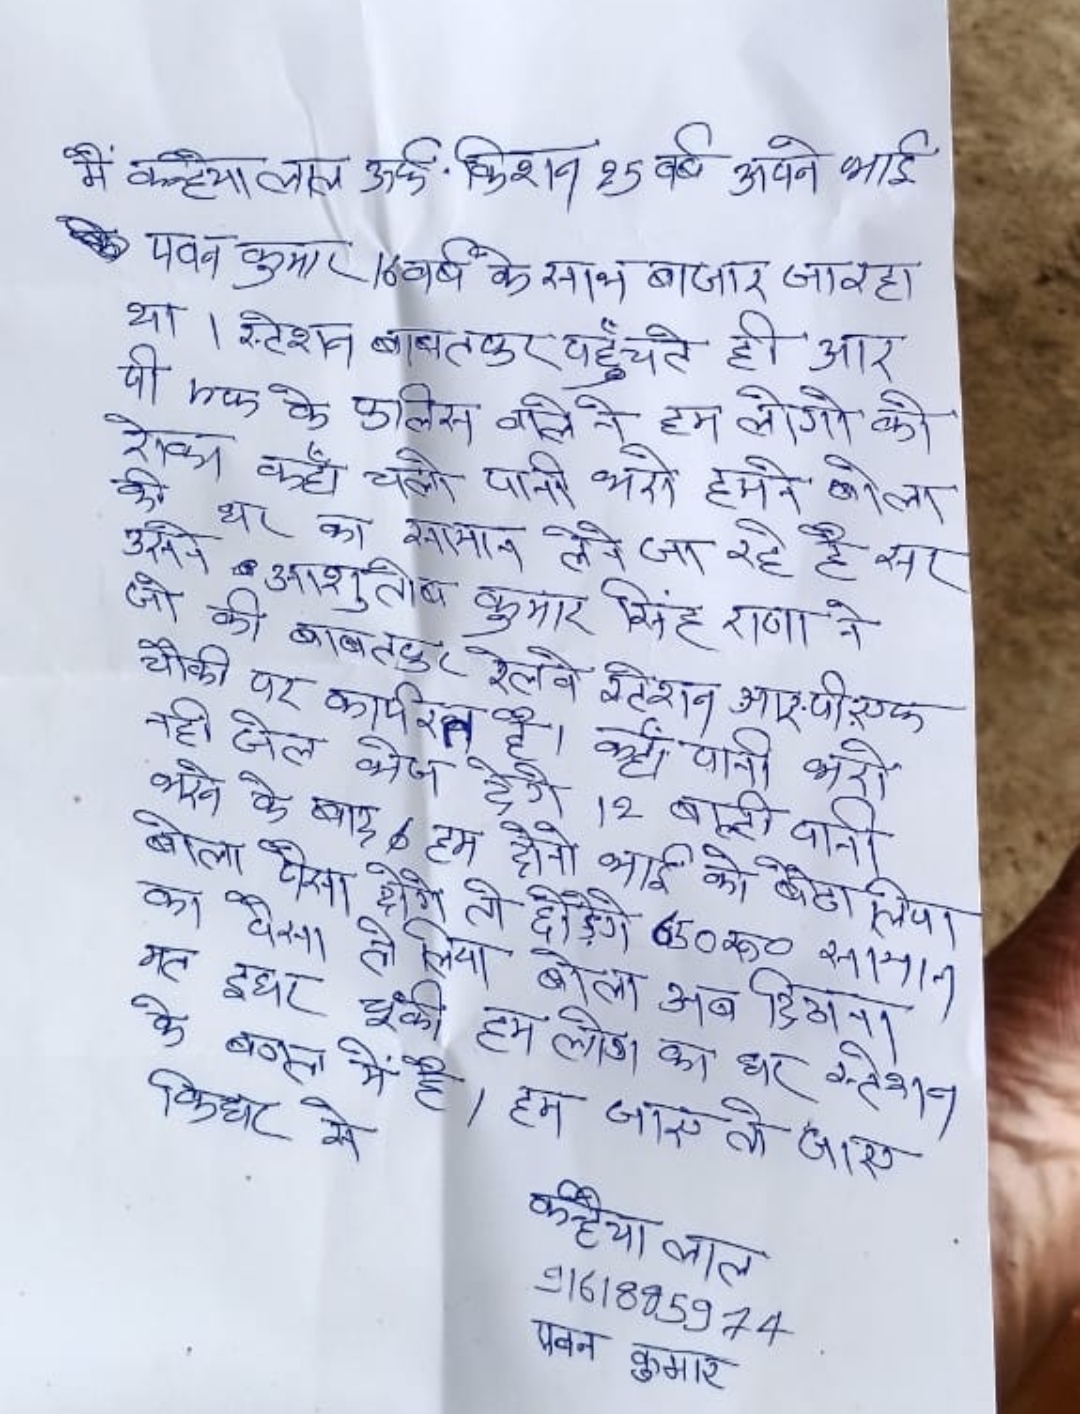 मैं कन्हैया लाल उर्फ किशन 25 वर्ष अपने भाई
पवन कुमार 16 वर्ष के साथ बाजार जा रहा
था । स्टेशन बाबतपुर पहुँचते ही आर
पी एफ के पुलिस वाले ने हम लोगो को
रोका कहाँ चलो पानी भरो हमने बोला
की घर का सामान लेने जा रहे है सर
उसने आशुतोष कुमार सिंह राणा ने
जो की बाबतपुर रेलवे स्टेशन आर.पी.एफ
चौकी पर कार्यरत है । कहाँ पानी भरो
नही जेल भेज देंगे 12 बाल्टी पानी
भरने के बाद हम दोनो भाई को बैठा लिया
बोला पैसा दोगे तो छोड़ेंगे 650 रू० सामान
का पैसा ले लिया बोला अब दिखना
मत इधर चूंकी हम लोग का घर स्टेशन
के बगल में है । हम जाए तो जाए
किधर से
कन्हैया लाल
9161885974
पवन कुमार